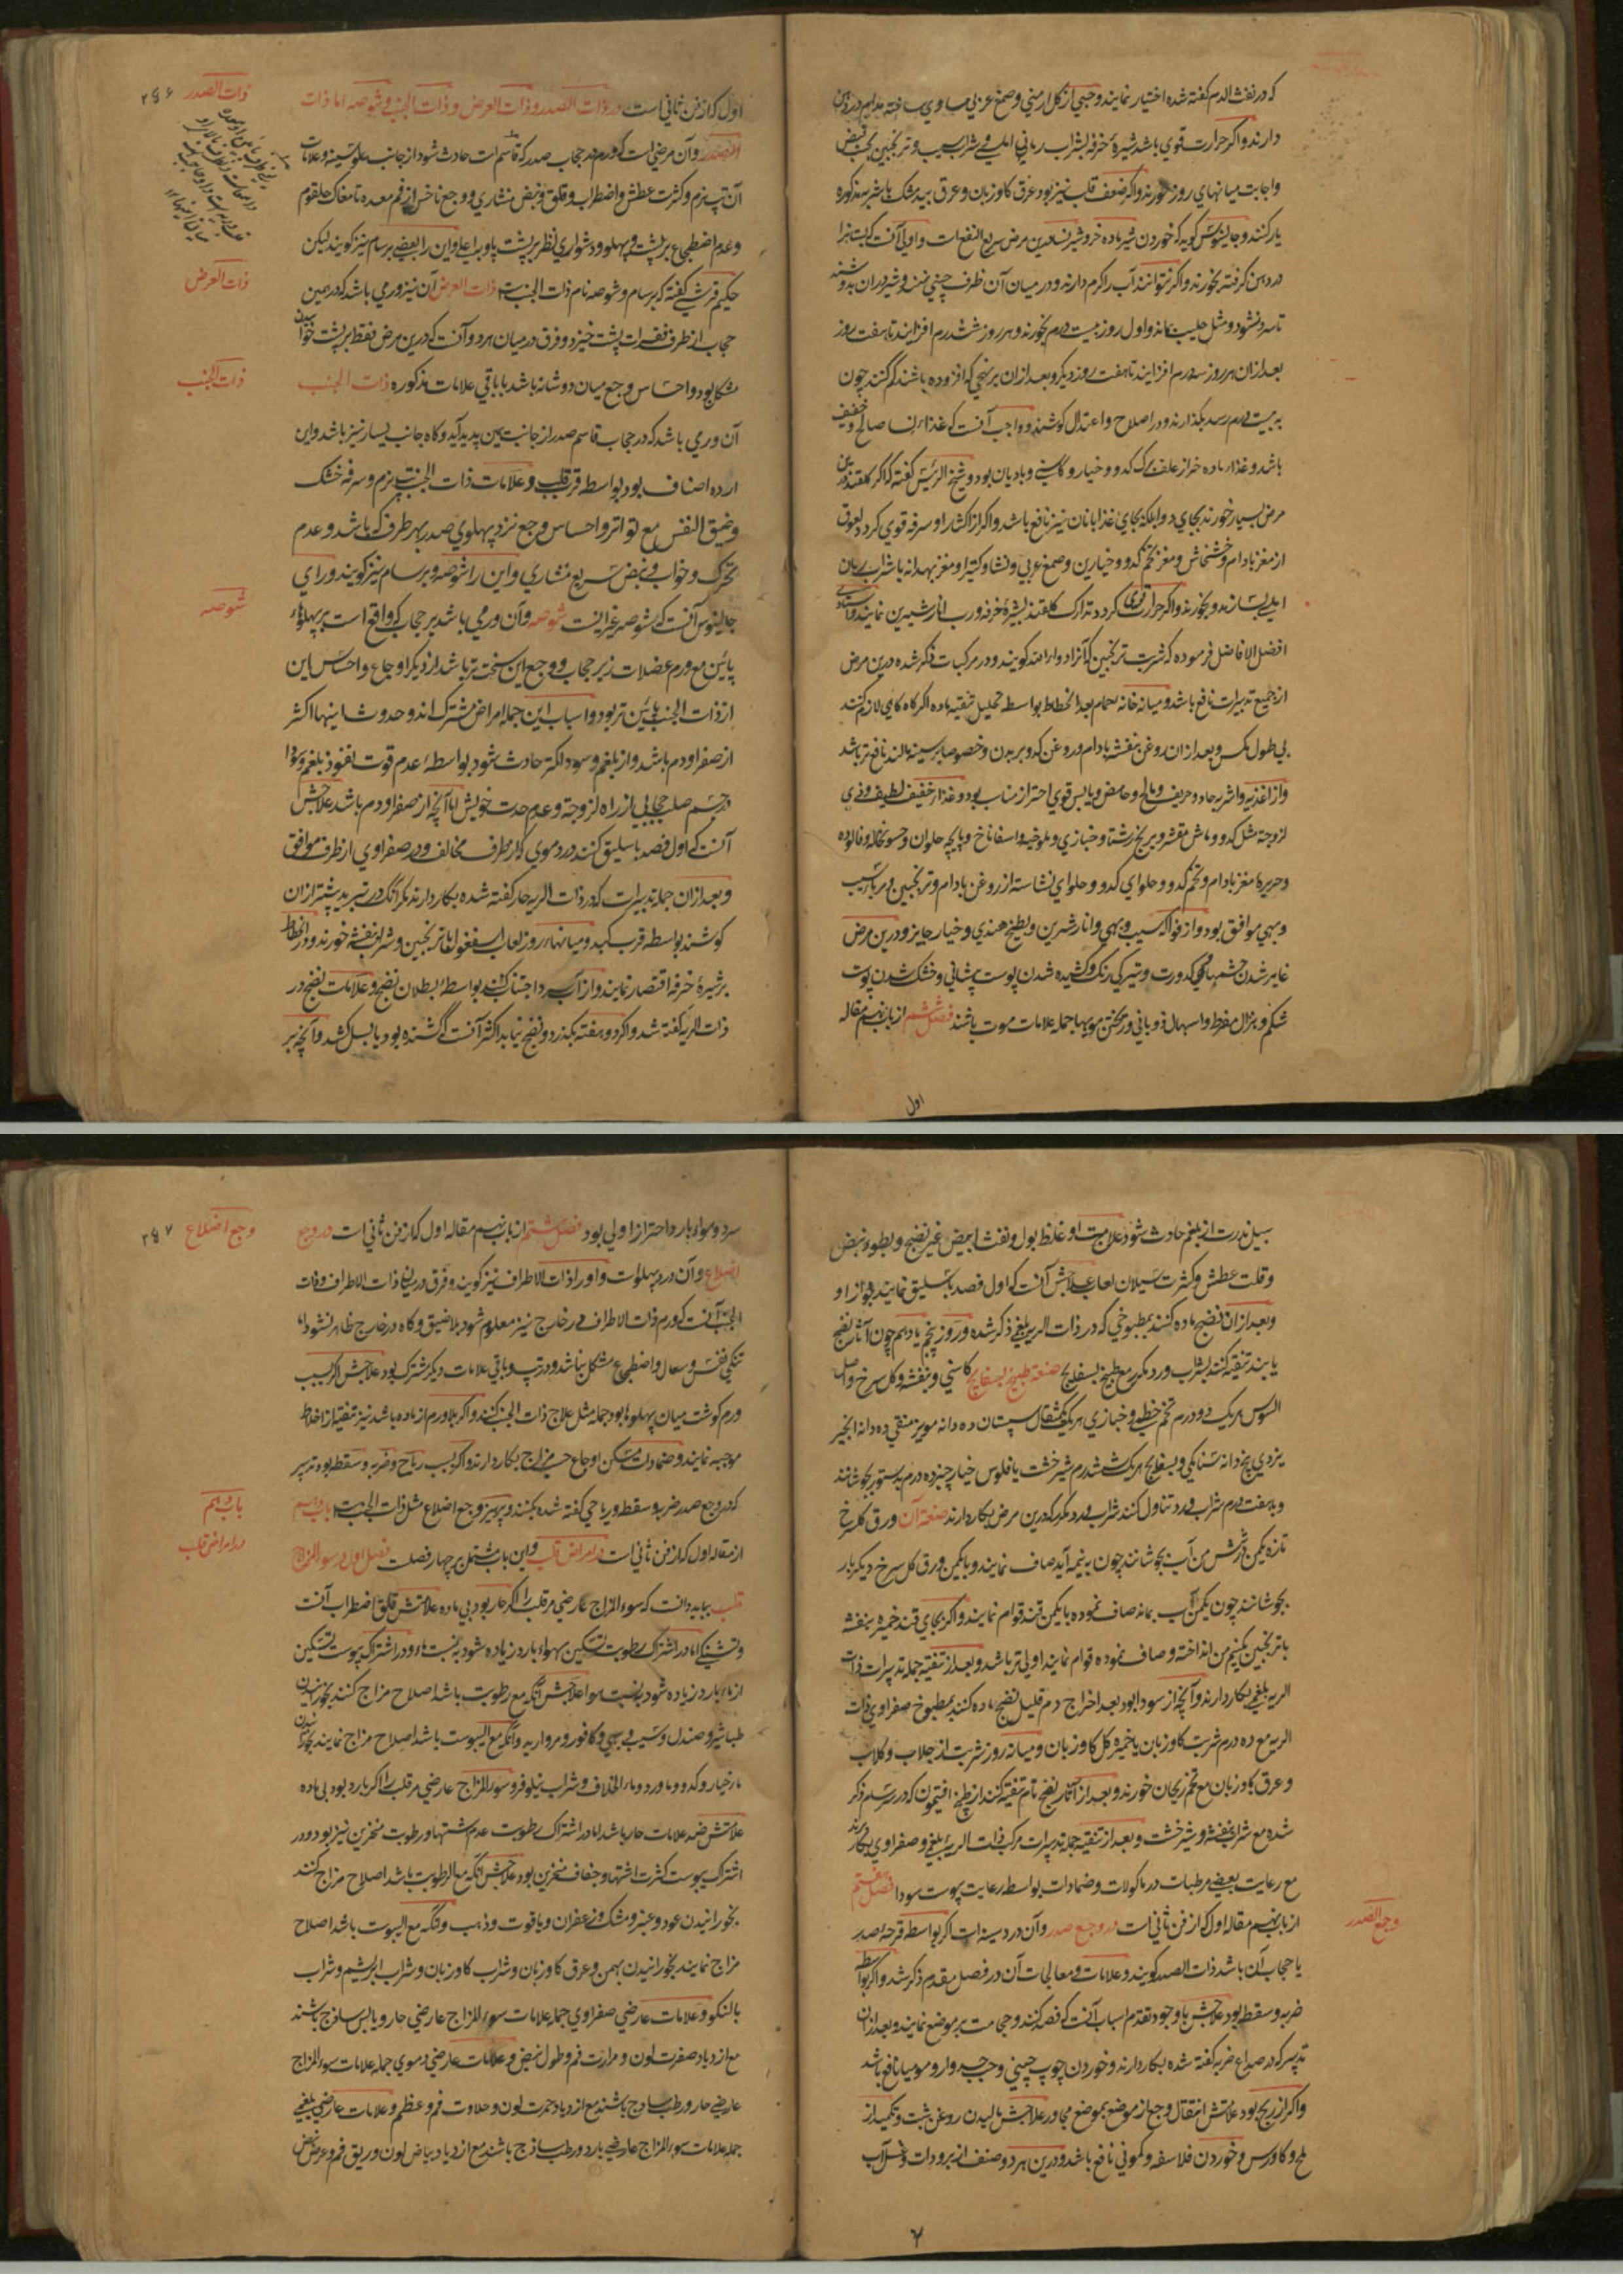 که در نفث الدم گفته شده اختیار نمایند و حبی از گل ارمنی و صمغ عربی مساوی ساخته مدام در دهن
دارند و اگر حرارت قوی باشد شیرهٔ خرفه بشراب رمانی املسی و شراب سیب و ترنجبین بجهت قبض
و اجابت میانهای روز خورند و اگر ضعف قلب نیز بود عرق گاوزبان و عرق بیدمشک با شربت مذکوره
یار کنند و جالینوس گوید که خوردن شیر ماده خر و شیر نسا درین مرض سریع النفع است و اولی آنست که پستانرا
در دهن گرفته بخورند و اگر نتوانند آب را گرم دارند و در میان آن ظرف چینی نهند و شیر در ان بدوشند
تا سرد نشود و مثل حلیب بماند و اول روز بیست درم بخورند و هر روز شش درم افزایند تا هفت روز
بعد از ان هر روز سه درم افزایند تا هفت روز دیگر و بعد از ان بر نهجی که افزوده باشند کم کنند چون
به بیست درم رسد بگذارند و در اصلاح و اعتدال کوشند و واجب آنست که غذاء نسا صالح و خفیف
باشد و غذاء ماده خر از علف برگ کدو و خیار و کاسنی و بادیان بود و شیخ الرئیس گفته که اگر گلقند درین
مرض بسیار خورند بجای دوا بلکه بجای غذا با نان نیز نافع باشد و اگر از اکثار او سرفه قوی گردد لعوق
از مغز بادام و خشخاش و مغز تخم کدو و خیارین و صمغ عربی و نشا و کتیرا و مغز بهدانه با شراب رمان
املسی بسازند و بخورند و اگر حرارت قوی گردد تدارک گلقند بشیرهٔ خرفه و رب انار شیرین نمایند و استادی
افضل الافاضل فرموده که شربت ترنجبین که آنرا دواء الله گویند و در مرکبات ذکر شده درین مرض
از جمیع تدبیرات نافع باشد و میانه خانه حمام بعد انحطاط بواسطه تحلیل تنقیه ماده اگر گاه گاهی لازم کنند
بی طول مکس و بعد از ان روغن بنفشه بادام و روغن کدو بر بدن و خصوصا بر سینه مالند نافع تر باشد
و از اغذیه و اشربه حاد و حریف و مالح و حامض و یابس قوی احتراز مناسب بود و غذاء خفیف لطیف و ذی
لزوجة مثل کدو و ماش مقشر و برنج رشتا و خبازی و ملوخیه و اسفاناخ و پایچه حلوان و حسو نخاله و فالوده
و حریرهٔ مغز بادام و تخم کدو و حلوای کدو و حلوای نشاسته از روغن بادام و ترنجبین و مربا سیب
و بهی موافق بود و از فواکه سیب و بهی و انار شیرین و بطیخ هندی و خیار جایز و درین مرض
غایر شدن چشمها و کدورت و تیرگی رنگ و کشیده شدن پوست پیشانی و خشک شدن پوست
شکم و هزال مفرط و اسهال ذوبانی و ریختن مویها جمله علامات موت باشند فصل ششم از باب نهم مقاله
اول
ذات الصدر ۲۵۶
اول که از فن ثانی است در ذات الصدر و ذات العرض و ذات الجنب و شوصه اما ذات
الصدر و آن مرضی است که ورم در حجاب صدر که قاسم است حادث شود از جانب علو سینه و علامات
آن تپ نرم و کثرت عطش و اضطراب و قلق و نبض منشاری و وجع ناخس از فم معده تا مغاک حلقوم
و عدم اضطجاع بر پشت و پهلو و دشواری نظر بر پشت پا و به اعلی و این را بعضی برسام نیز گویند لیکن
ذات العرض
حکیم قرشی گفته که برسام و شوصه نام ذات الجنب است ذات العرض آن نیز ورمی باشد که در همین
حجاب از طرف فقرات پشت خیزد و فرق در میان هر دو آنست که درین مرض فقط بر پشت خوابیدن
ذات الجنب
مشکل بود و احساس وجع میان دو شانه باشد با باقی علامات مذکوره ذات الجنب
آن ورمی باشد که در حجاب قاسم صدر از جانب یمین پدید آید و گاه جانب یسار نیز باشد و این
ارده اصناف بود بواسطه قرب قلب و علامات ذات الجنب تپ نرم و سرفه خشک
و ضیق النفس مع تواتر و احساس وجع نزد پهلوی صدر بهر طرف که باشد و عدم
تحرک و خواب و نبض سریع منشاری و این را شوصه و برسام نیز گویند و رای
شوصه
جالینوس آنست که شوصه غیر اینست شوصه و آن ورمی باشد بر حجاب که واقع است بر پهلوهاء
پائین مع ورم عضلات زیر حجاب و وجع این سخت تر باشد از دیگر اوجاع و احساس این
از ذات الجنب پائین تر بود و اسباب این جمله امراض مشترک اند و حدوث اینها اکثر
از صفرا و دم باشد و از بلغم و سودا کمتر حادث شود بواسطهٔ عدم قوت نفوذ بلغم و سودا
در جسم صلب حجابی از راه لزوجة و عدم حدت خویش اما آنچه از صفرا و دم باشد علاجش
آنست که اول فصد باسلیق کنند در دموی که از طرف مخالف و در صفراوی از طرف موافق
و بعد از ان جمله تدبیرات که در ذات الریه حار گفته شده بکار دارند مگر آنکه در تبرید بیشتر از ان
کوشند بواسطه قرب کبد و میانهاء روز لعاب اسفغول با ترنجبین و شراب بنفشه خورند و در انحطاط
بر شیرهٔ خرفه اقتصار نمایند و از آب سرد اجتناب کنند بواسطهٔ بطلان نضج و علامات نضج در
ذات الریه گفته شد و اگر دو هفته بگذرد و نضج نیابد اکثر آنست که کشنده بود یا بسل کشد و آنچه بر
سبیل ندرت از بلغم حادث شود علامت او غلظ بول و نفث ابیض غیر نضج و بطوء نبض
و قلت عطش و کثرت سیلان لعاب علاجش آنست که اول فصد باسلیق نمایند بجواز او
و بعد از ان نضج ماده کنند بمطبوخی که در ذات الریه بلغمی ذکر شده و روز پنجم یا دهم چون آثار نضج
یابند تنقیه کنند بشراب ورد مکرر مع طبیخ بسفایج صنعة طبیخ بسفایج کاسنی و بنفشه و گل سرخ و اصل
السوس هر یک دو درم تخم خطمی و خبازی هر یک یک مثقال سپستان ده دانه مویز منقی ده دانه انجیر
یزدی پنج دانه سنامکی و بسفایج هر یک شش درم شیرخشت یا فلوس خیارچنبر ده درم بدستور بجوشانند
و به هفت درم شراب ورد تناول کنند شراب ورد مکرر که درین مرض بکار دارند صنعة آن ورق گل سرخ
تازه یکمن در شش من آب بجوشانند چون به نیمه آید صاف نمایند و با یکمن ورق گل سرخ دیگر بار
بجوشانند چون یکمن آب بماند صاف نموده با یکمن قند قوام نمایند و اگر بجای قند خمیره بنفشه
یا ترنجبین یکنیم من انداخته و صاف نموده قوام نمایند اولی تر باشد و بعد از تنقیه جمله تدبیرات ذات
الریه بلغمی بکار دارند و آنچه از سودا بود بعد اخراج دم قلیل نضج ماده کنند بمطبوخ صفراوی ذات
الریه مع ده درم شربت گاوزبان یا خمیره گل گاوزبان و میانه روز شربت از جلاب و گلاب
و عرق گاوزبان مع تخم ریحان خورند و بعد از آثار نضج تام تنقیه کنند از طبیخ افتیمون که در سرسام ذکر
شده مع شراب بنفشه و شیرخشت و بعد از تنقیه جمله تدبیرات مرکب ذات الریهٔ بلغمی و صفراوی بکار برند
مع رعایت بعضی مرطبات در ماکولات و ضمادات بواسطه رعایت یبوست سودا فصل هفتم
وجع الصدر
از باب نهم مقاله اول که از فن ثانی است در وجع صدر و آن درد سینه است اگر بواسطه قرحهٔ صدر
یا حجاب آن باشد ذات الصدر گویند و علامات و معالجات آن در فصل مقدم ذکر شد و اگر بواسطه
ضربه و سقطه بود علاجش با وجود تقدم اسباب آنست که فصد کنند و حجامت بر موضع نمایند و بعد از ان
تدبیر که در صداع ضربه گفته شده بکار دارند و خوردن چوب چینی و حب جدوار و مومیا نافع باشد
و اگر از ریح بود علامتش انتقال وجع از موضع بموضع مجاور علاجش مالیدن روغن شبت و تکمید از
ملح و گاورس و خوردن فلاسفه و کمونی نافع باشد و درین هر دو صنف از برودات و غسل آب
وجع اضلاع ۲۵۷
سرد و هواء بارد احتراز اولی بود فصل هشتم از باب نهم مقاله اول که از فن ثانی است در وجع
اضلاع و آن درد پهلوست و او را ذات الاطراف نیز گویند و فرق در میان ذات الاطراف و ذات
الجنب آنست که ورم ذات الاطراف در خارج نیز معلوم شود بلا ضیق و گاه در خارج ظاهر نشود اما
تنگی نفس و سعال و اضطجاع مشکل نباشد و در تپ و باقی علامات دیگر مشترک بود علاجش اگر بسبب
ورم گوشت میان پهلوها بود جمله مثل علاج ذات الجنب کنند و اگر بلا ورم از ماده باشد نیز تنقیه از اخلاط
موجبه نمایند و ضمادات مسکن اوجاع حسب مزاج بکار دارند و اگر بسبب ریاح و ضربه و سقطه بود تدبیر
باب دهم
که در وجع صدر ضربه و سقطه و ریاحی گفته شده بکنند و پرهیز وجع اضلاع مثل ذات الجنب است باب دهم
در امراض قلب
از مقاله اول که از فن ثانی است در امراض قلب و این باب مشتمل بر چهار فصلست فصل اول در سوء المزاج
قلب بباید دانست که سوء المزاج عارضی مر قلب را اگر حار بود بی ماده علامتش قلق و اضطراب آنست
و تشنگی اما در اشتراک رطوبت تسکین بهواء بارد زیاده شود به نسبت ماء و در اشتراک یبوست تسکین
از ماء بارد زیاده شود به نسبت هوا علاجش آنکه مع رطوبت باشد اصلاح مزاج کنند بخورانیدن
طباشیر و صندل و سیب و بهی و کافور و مروارید و آنکه مع الیبوست باشد اصلاح مزاج نمایند بخورانیدن
ماء خیار و کدو و ماء ورد و ماء الخلاف و شراب نیلوفر و سوء المزاج عارضی مر قلب را اگر بارد بود بی ماده
علامتش ضد علامات حار باشد اما در اشتراک رطوبت عدم اشتها و رطوبت منخرین نیز بود و در
اشتراک یبوست کثرت اشتها و جفاف منخرین بود علاجش آنکه مع الرطوبت باشد اصلاح مزاج کنند
بخورانیدن عود و عنبر و مشک و زعفران و یاقوت و ذهب و آنکه مع الیبوست باشد اصلاح
مزاج نمایند بخورانیدن بهمن و عرق گاوزبان و شراب گاوزبان و شراب ابریشم و شراب
بالنکو و علامات عارضی صفراوی جمله علامات سوء المزاج عارضی حار و یابس ساذج باشند
مع ازدیاد صفرت لون و مرارت فم و طول نبض و علامات عارضی دموی جمله علامات سوء المزاج
عارضی حار و رطب ساذج باشند مع ازدیاد حمرت لون و حلاوت فم و عظم و علامات عارضی بلغمی
جمله علامات سوء المزاج عارضی بارد و رطب ساذج باشند مع ازدیاد بیاض لون و ریق فم و عرض نبض